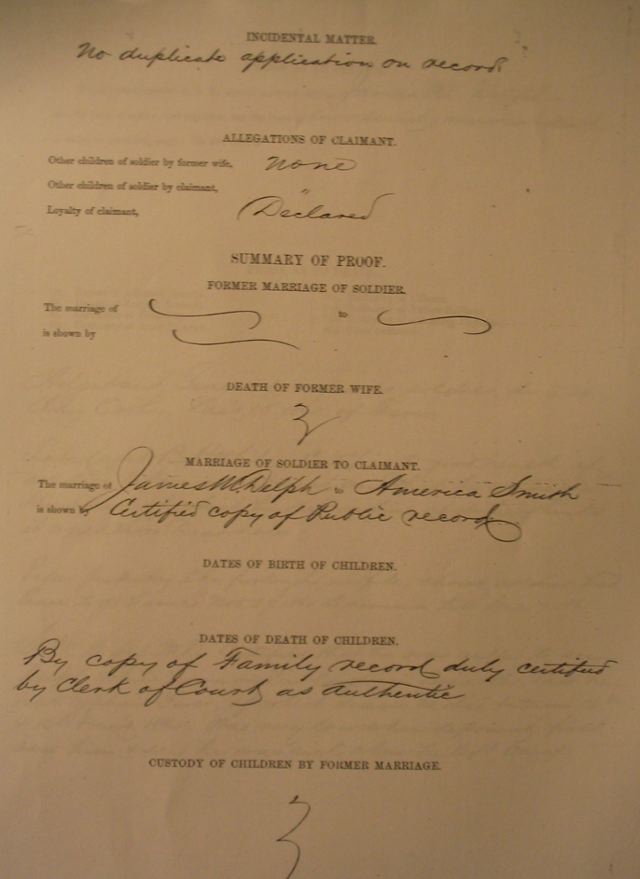 INCIDENTAL MATTER.
No duplicate application on record.
ALLEGATIONS OF CLAIMANT.
Other children of soldier by former wife, None
Other children of soldier by claimant, "
Loyalty of claimant, Declared
SUMMARY OF PROOF.
FORMER MARRIAGE OF SOLDIER.
The marriage of to
is shown by
DEATH OF FORMER WIFE.
MARRIAGE OF SOLDIER TO CLAIMANT.
The marriage of James M. Delph to America Smith
is shown by Certified copy of Public record
DATES OF BIRTH OF CHILDREN.
DATES OF DEATH OF CHILDREN.
By copy of Family record duly certified
by Clerk of Court as authentic
CUSTODY OF CHILDREN BY FORMER MARRIAGE.